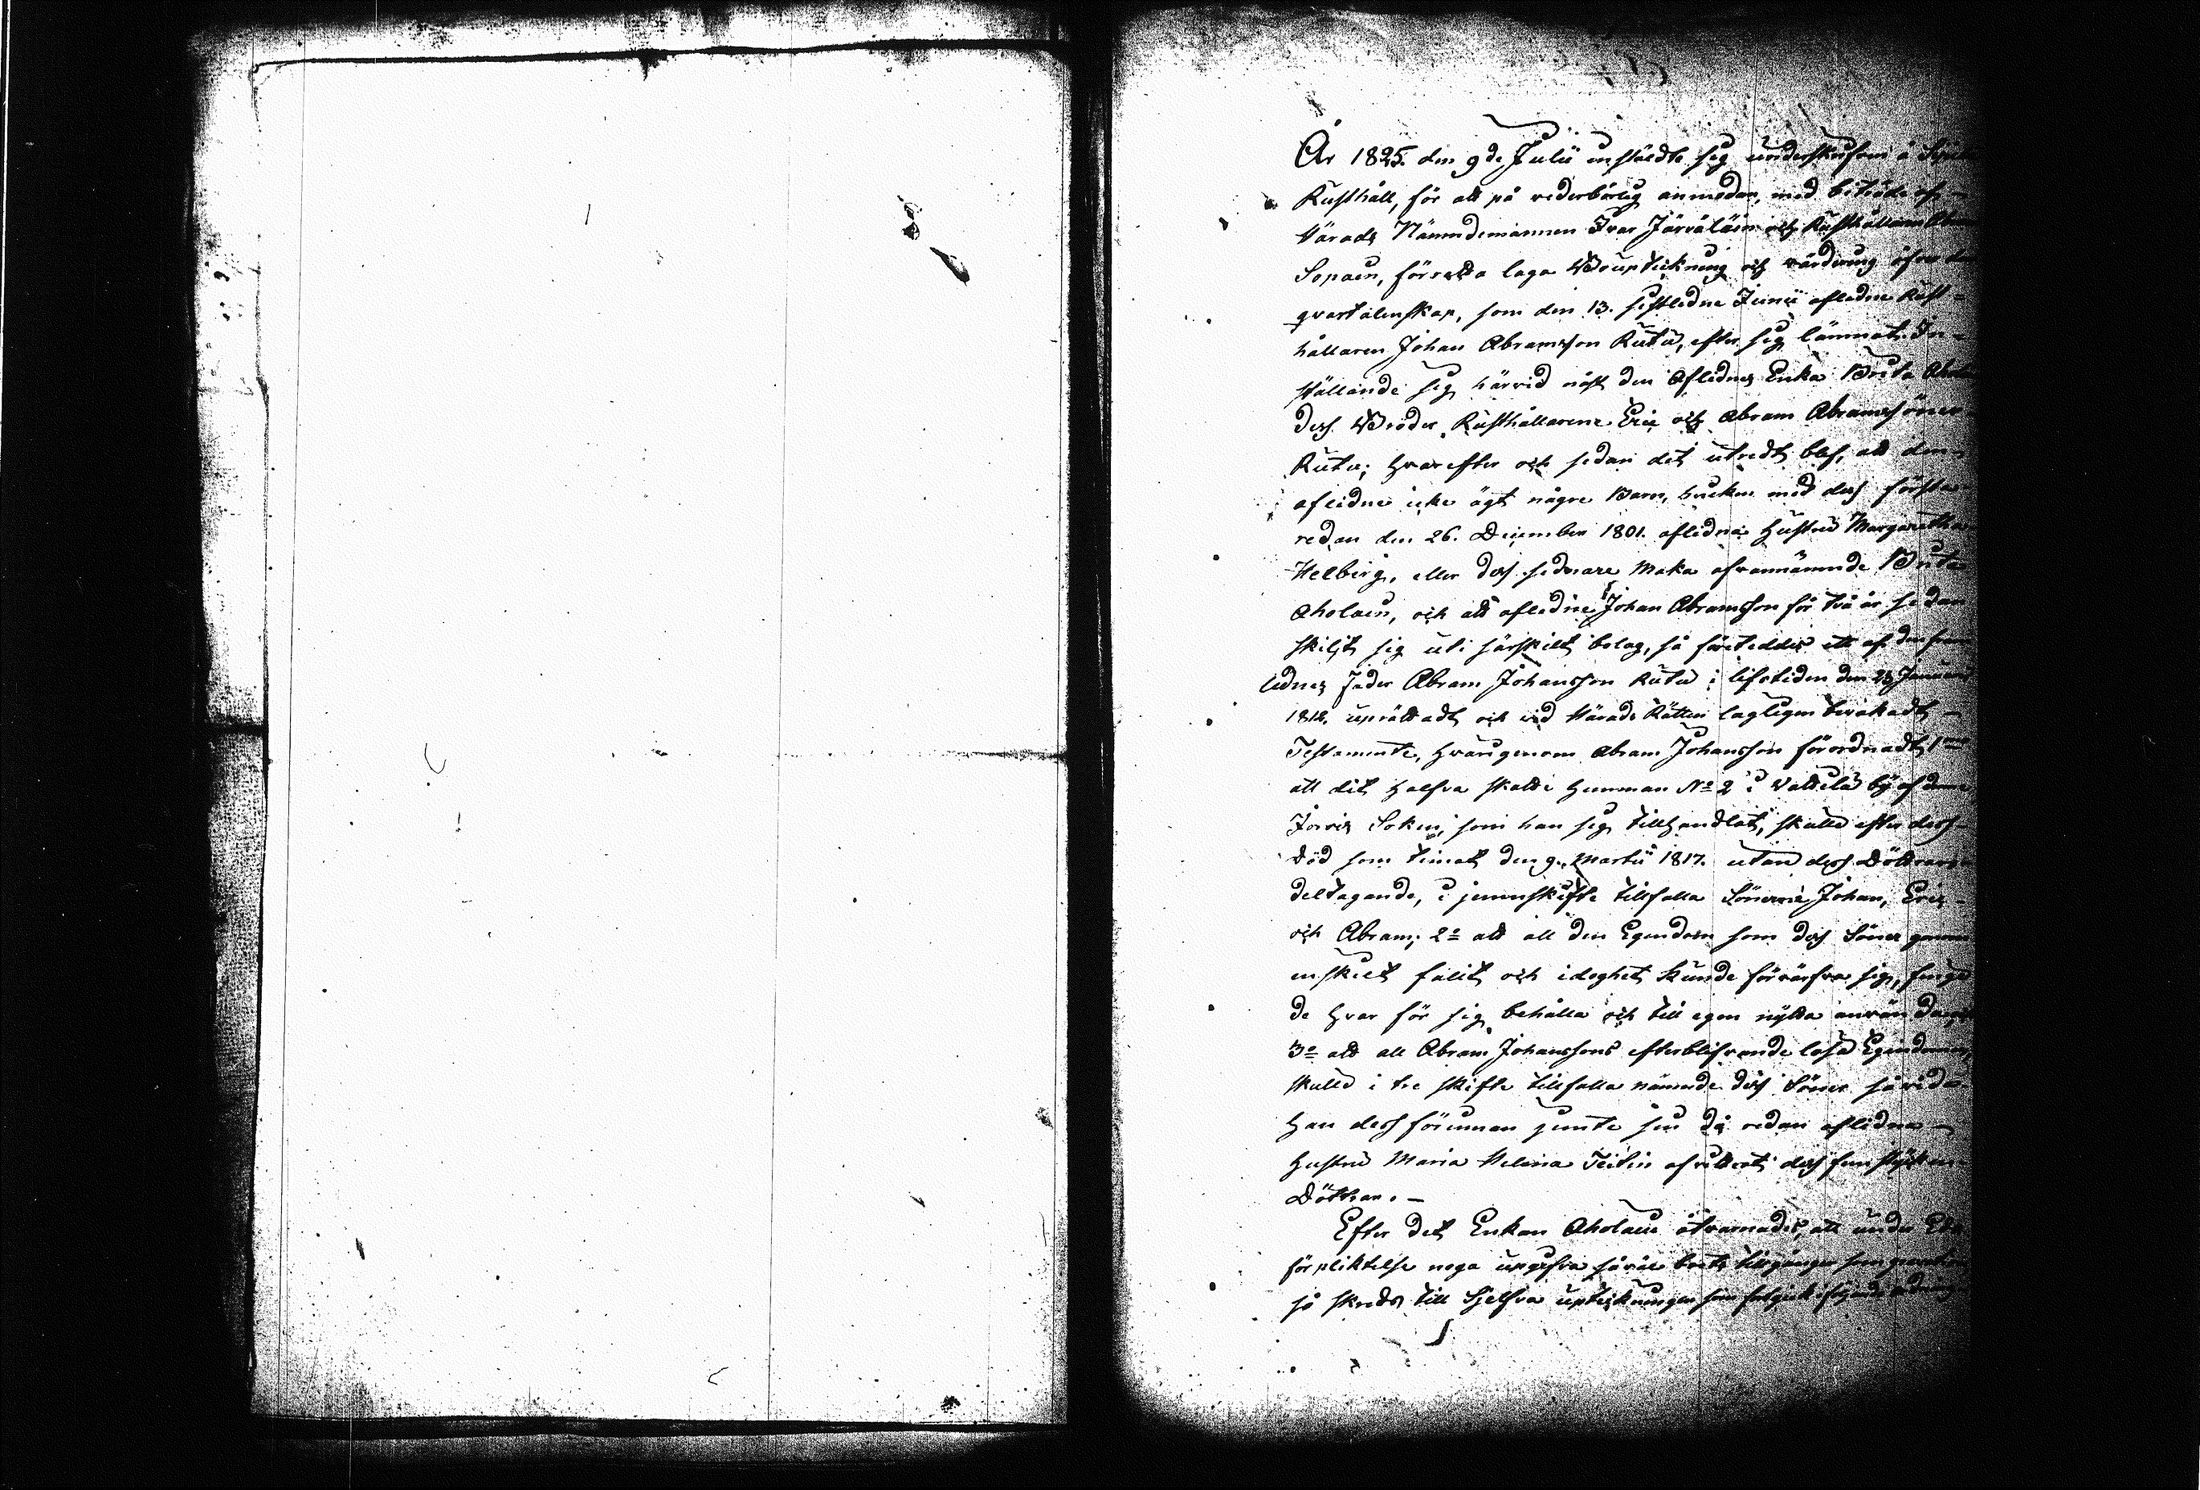 År 1825. den 9de Julii instäldte sig underskrifven å
Rusthåll, för att på vederbörlig anmodan, med biträde af
Härads Nämndemannen Ivar Järväläin och Rusthållaren
Sopain, förrätta laga Boupteckning och värdering öfver den
qvarlåtenskap, som den 13. sistledne Junii aflidne Rust-
hållaren Johan Abramsson Rutu, efter sig lämnat. In-
ställande sig härvid näst den Aflidnes Enka Brita
dess Bröder, Rusthållarene Eric och Abram Abramssöner
Rutu; hvarefter och sedan det utredt blef, att den
aflidne icke ägt några Barn, hvarken med dess första
redan den 26. December 1801. aflidna Hustru Margaretha
Helberg, eller dess sednare Maka ofvannämnde Brita
Aholain, och att aflidne Johan Abramsson för två år sedan
skiljt sig uti särskilt bolag, så företeddes ett af den
lidnes Fader Abram Johansson Rutu i lifstiden den 28 Januarii
1812. uprättadt och vid Härads Rätten lagligen bevakadt
Testamente, hvarigenom Abram Johansson förordnadt 1mo
att det halfva skatte hemman No 2 i Vattela by af denna
Jorois Soken, som han sig tillhandlat, skulle efter dess
död som timat den 9. Martii 1817. utan dess Döttrars
deltagande, i jemnskifte tillfalla Sönerne Johan, Eric
och Abram; 2o att all den Egendom som dess Söner genom
enskilt flit och idoghet kunde förvärfva sig, finge
de hvar för sig behålla och till egen nytta använda,
3o att all Abram Johanssons efterblifvande lösa Egendom,
skulle i tre skifte tillfalla nämnde dess Söner så vida
han dess förinnan jemte sin då redan aflidna
hustru Maria Helena Teitin afvittrat dess fem stycken
Döttrar. —
Efter det Enkan Aholain åtvarnades, att under Eds
förpliktelse noga uppgifva såväl boets tillgångar som
så skreds till Sjelfva upteckningen som